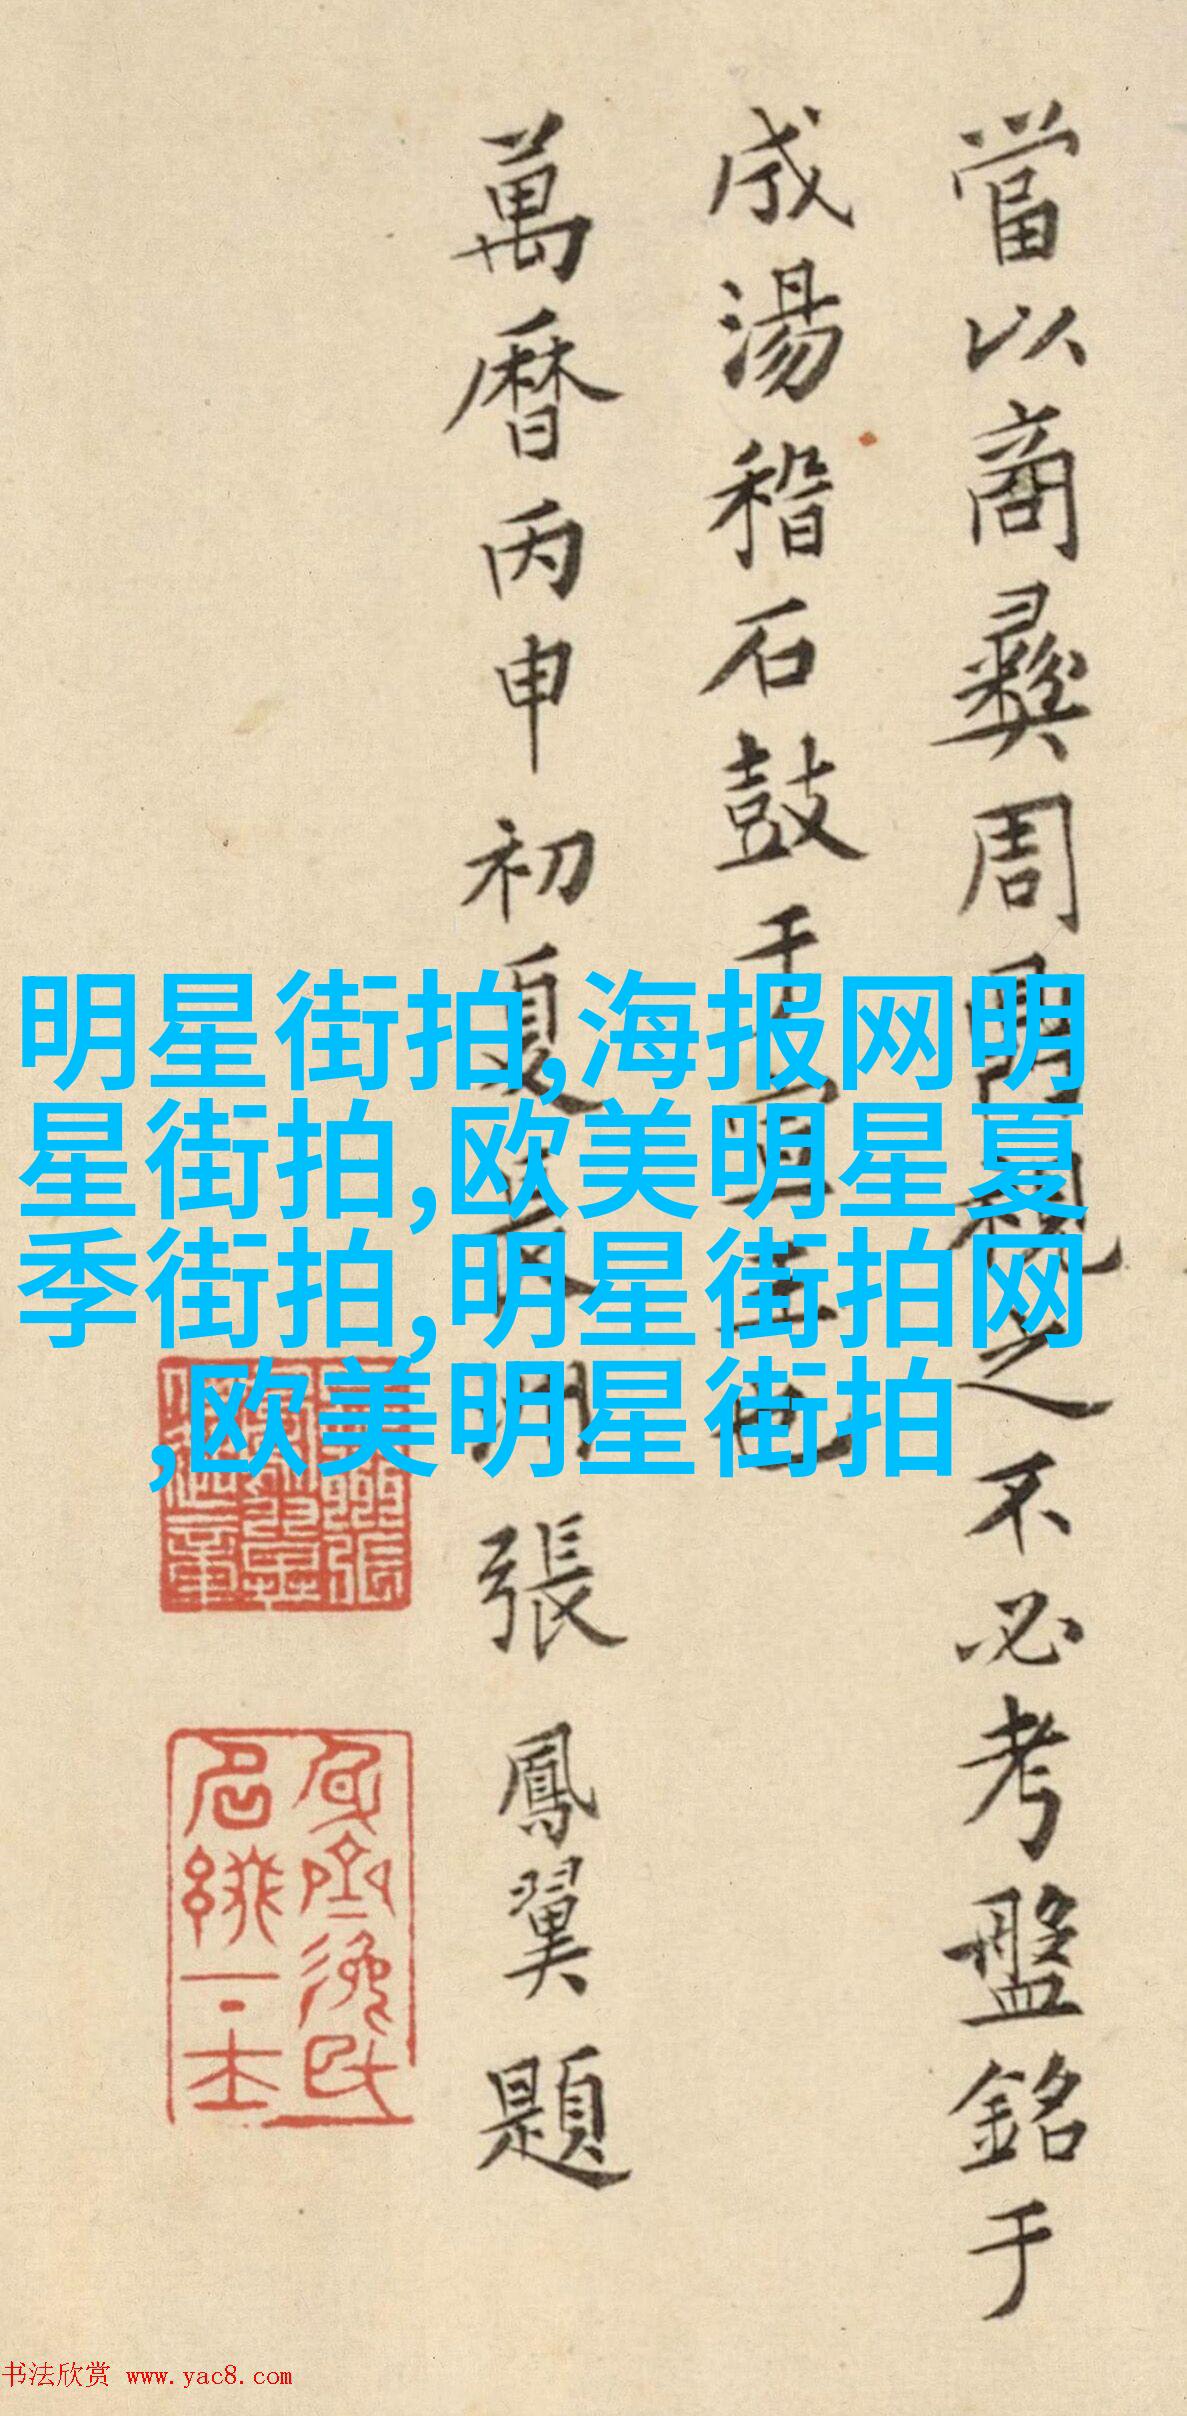 當以商彝周鼎視之不必考盤銘于
成湯稽石鼓于宣王也
萬曆丙申初夏長洲張鳳翼題
明星街拍,海报网明
星街拍,欧美明星夏
季街拍,明星街拍网
,欧美明星街拍
书法欣赏 www.yac8.com